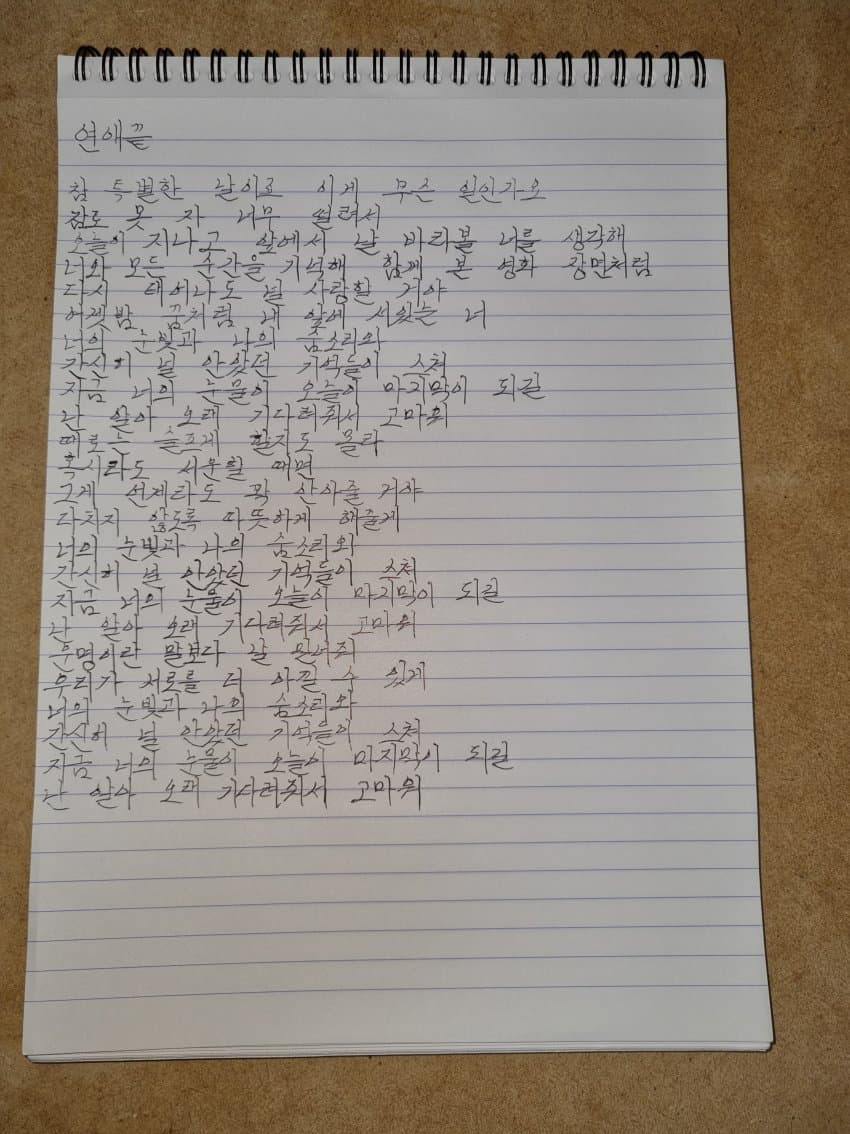 연애끝
참 특별한 날이로 이게 무슨 일인가요
잠도 못 자 너무 떨려서
오늘이 지나고 앞에서 날 바라볼 너를 생각해
너와 모든 순간을 기억해 함께 본 영화 장면처럼
다시 태어나도 널 사랑할 거야
어젯밤 꿈처럼 내 앞에 서있는 너
너의 눈빛과 나의 숨소리와
간신히 널 안았던 기억들이 스쳐
지금 너의 눈물이 오늘이 마지막이 되길
난 알아 오래 기다려줘서 고마워
때로는 슬프게 할지도 몰라
혹시라도 서운할 때면
그게 언제라도 꽉 안아줄 거야
다치지 않도록 따뜻하게 해줄게
너의 눈빛과 나의 숨소리와
간신히 널 안았던 기억들이 스쳐
지금 너의 눈물이 오늘이 마지막이 되길
난 알아 오래 기다려줘서 고마워
운명이란 말보다 날 믿어줘
우리가 서로를 더 아낄 수 있게
너의 눈빛과 나의 숨소리와
간신히 널 안았던 기억들이 스쳐
지금 너의 눈물이 오늘이 마지막이 되길
난 알아 오래 기다려줘서 고마워